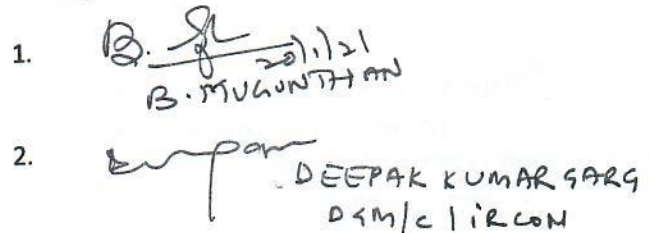 1. B.
20/1/21
B. MUGUNTHAN
2. Deepak
DEEPAK KUMAR GARG
DGM/C/IRCON